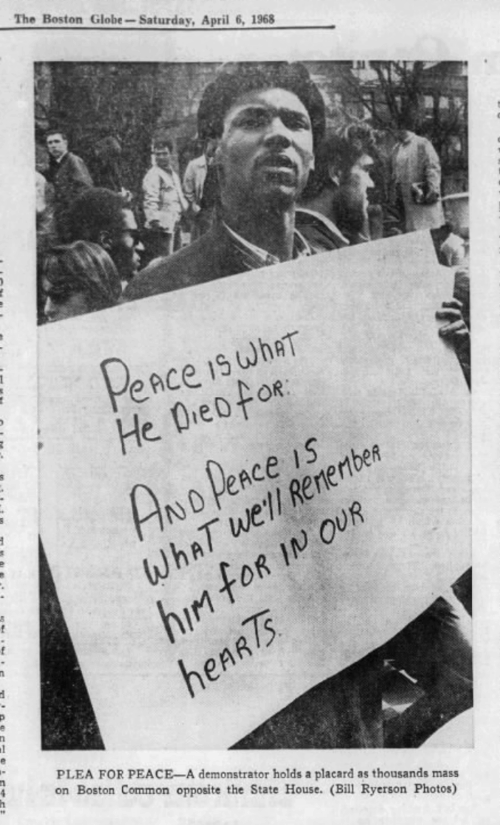 The Boston Globe—Saturday, April 6, 1968
PEACE IS WHAT
HE DIED FOR:
AND PEACE IS
WHAT WE'll REMEMBER
HIM FOR IN OUR
HEARTS.
PLEA FOR PEACE—A demonstrator holds a placard as thousands mass
on Boston Common opposite the State House. (Bill Ryerson Photos)